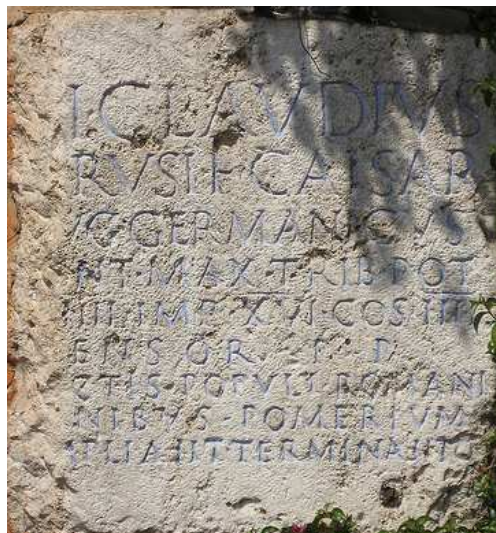 I·CLAVDIVS
RVSI·F·CAISAR
VG·GERMANICVS
NT·MAX·TRIB·POT
IIII·IMP·XVI·COS·IIII
ENSOR·P·P
CTIS·POPVLI·ROMANI
NIBVS·POMERIVM
PLIAℲIT·TERMINAℲIT